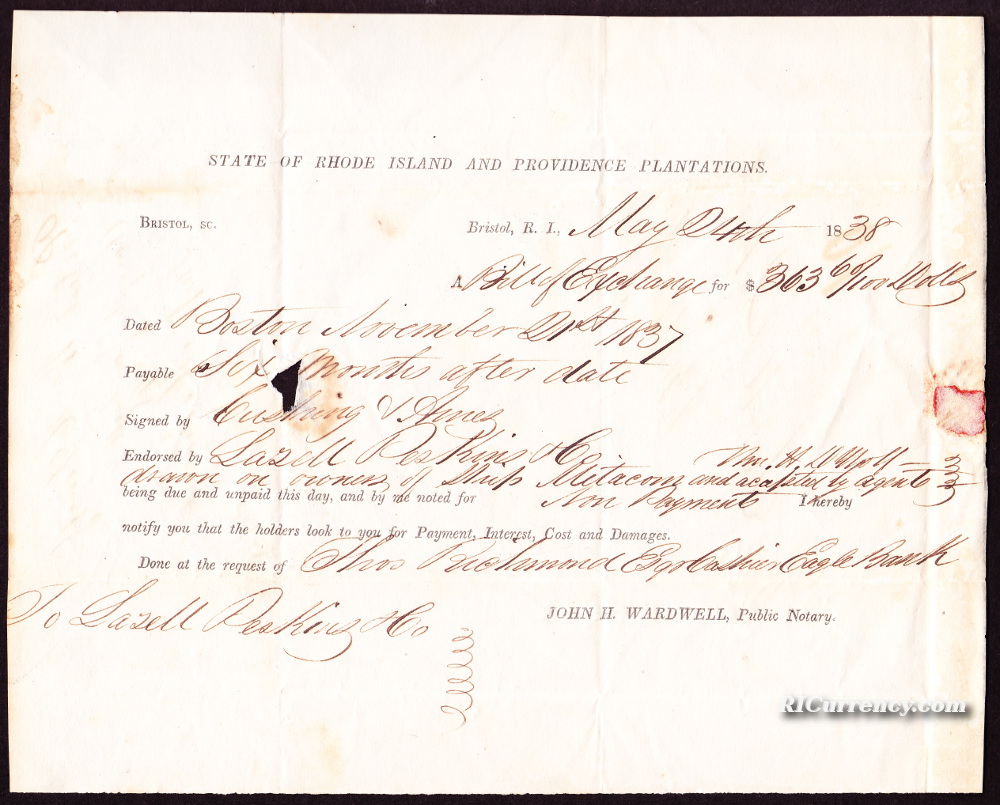 STATE OF RHODE ISLAND AND PROVIDENCE PLANTATIONS.
BRISTOL, SC. Bristol, R. I., May 24th 1838
A Bill of Exchange for $ 363 60/100 Dolls
Dated Boston November 21st 1837
Payable Six months after date
Signed by Cushing & Ames
Endorsed by Lazell Perkins & Co
drawn on owners of Ship Metacom and accepted by agents
being due and unpaid this day, and by me noted for Non Payment I hereby
notify you that the holders look to you for Payment, Interest, Cost and Damages.
Done at the request of Thos Richmond Esqr Cashier Eagle Bank
To Lazell Perkins & Co
JOHN H. WARDWELL, Public Notary.
RICurrency.com